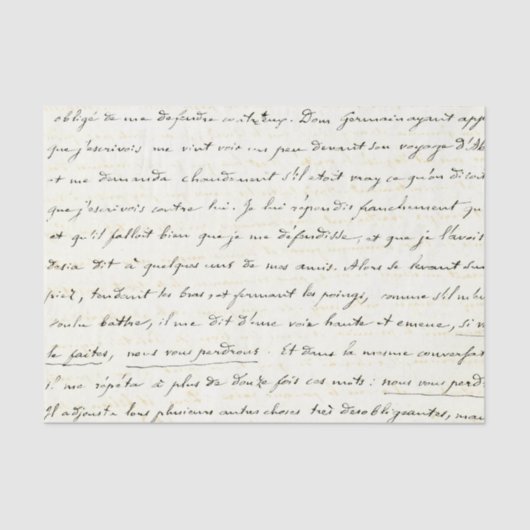 obligé de me defendre contr'eux. Dom Germain ayant app
que j'escrivois me vint voir un peu devant son voyage d'Al
et me demanda chaudement s'il etoit vray ce qu'on disoit
que j'escrivois contre lui. Je lui répondis franchement qu
et qu'il falloit bien que je me défendisse, et que je l'avois
desia dit à quelques uns de mes amis. Alors se levant sur
piez, tendant les bras, et fermant les poings, comme s'il m'eu
voulu battre, il me dit d'une voix haute et emeue, si v
le faites, nous vous perdrons. Et dans la mesme conversa
il me répéta à plus de douze fois ces mots: nous vous perd
Il adjousta tous plusieurs autres choses très desobligeantes, mai